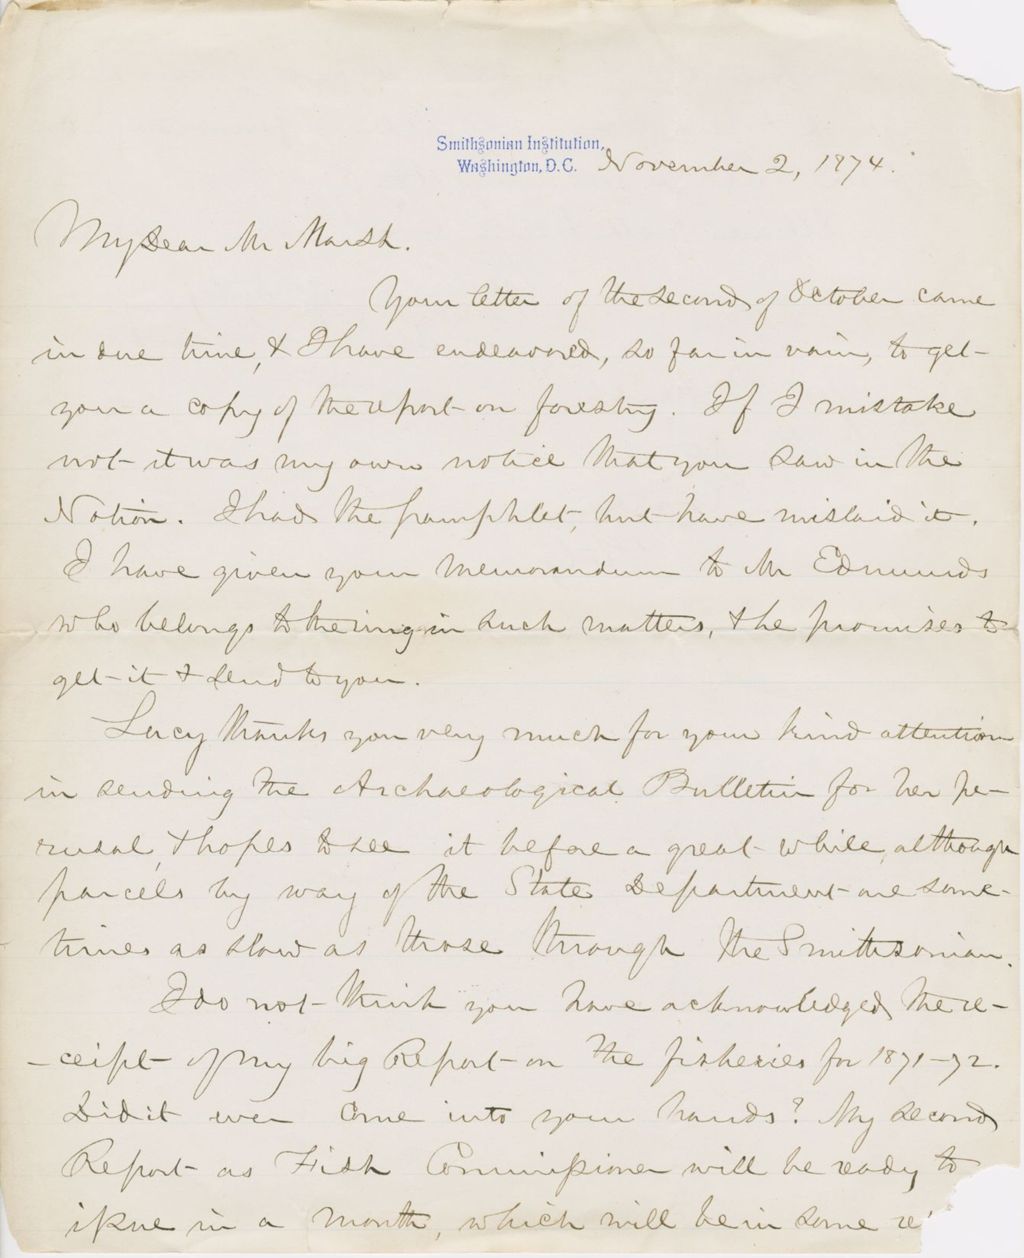 Smithsonian Institution,
Washington, D.C. November 2, 1874.
My Dear Mr Marsh.
Your letter of the second of October came
in due time, & I have endeavored, so far in vain, to get
you a copy of the report on forestry. If I mistake
not it was my own notice that you saw in the
Nation. I had the pamphlet, but have mislaid it.
I have given your memorandum to Mr Edmunds
who belongs to the ring in such matters, & he promises to
get it & send to you.
Lucy thanks you very much for your kind attention
in sending the Archaeological Bulletin for her pe-
rusal, & hopes to see it before a great while, although
parcels by way of the State Department are some-
times as slow as those through the Smithsonian.
I do not think you have acknowledged the re-
-ceipt of my big Report on the fisheries for 1871-72.
Did it ever come into your hands? My second
Report as Fish Commissioner will be ready to
issue in a month, which will be in some